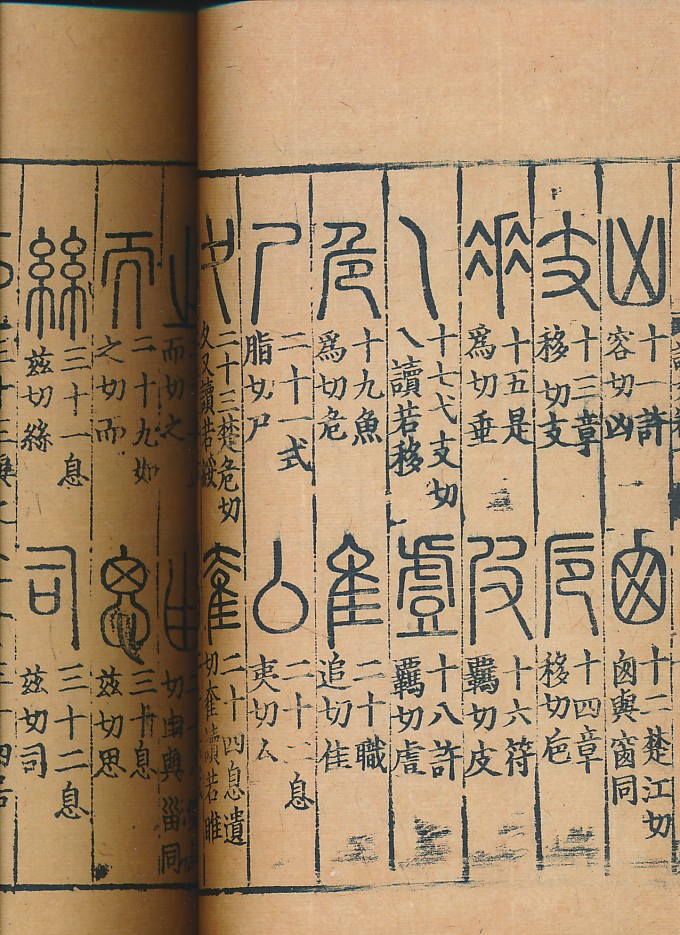 凶
十一許
容切凶
囱
十二楚江切
囱與窗同
支
十三章
移切支
卮
十四章
移切巵
𠂹
十五是
爲切垂
皮
十六符
羈切皮
乁
十七弋支切
乁讀若移
十八許
羈切
危
十九魚
爲切危
隹
二十職
追切隹
尸
二十一式
脂切尸
厶
二十二息
夷切厶
夊
二十三楚危切
夊又讀若綏
奞
二十四息遺
切奞讀若睢
之
而切之
而
二十九如
之切而
思
三十息
茲切思
絲
三十一息
茲切絲
司
三十二息
茲切司